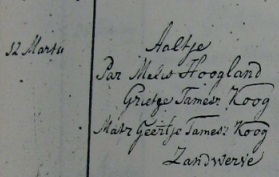 12 Martii Aaltje
Par Melis Hoogland
Grietje Tamesz Koog
Matr Geertje Tamesz Koog
Zandwerve